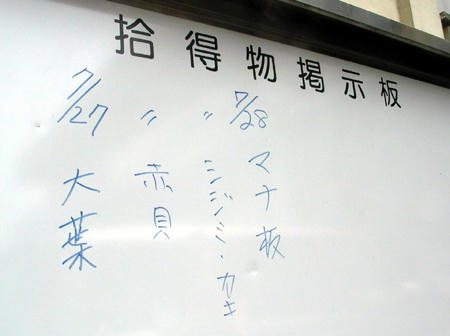 拾得物掲示板
7/28 マナ板
〃 シジミ・カキ
〃 赤貝
7/27 大葉